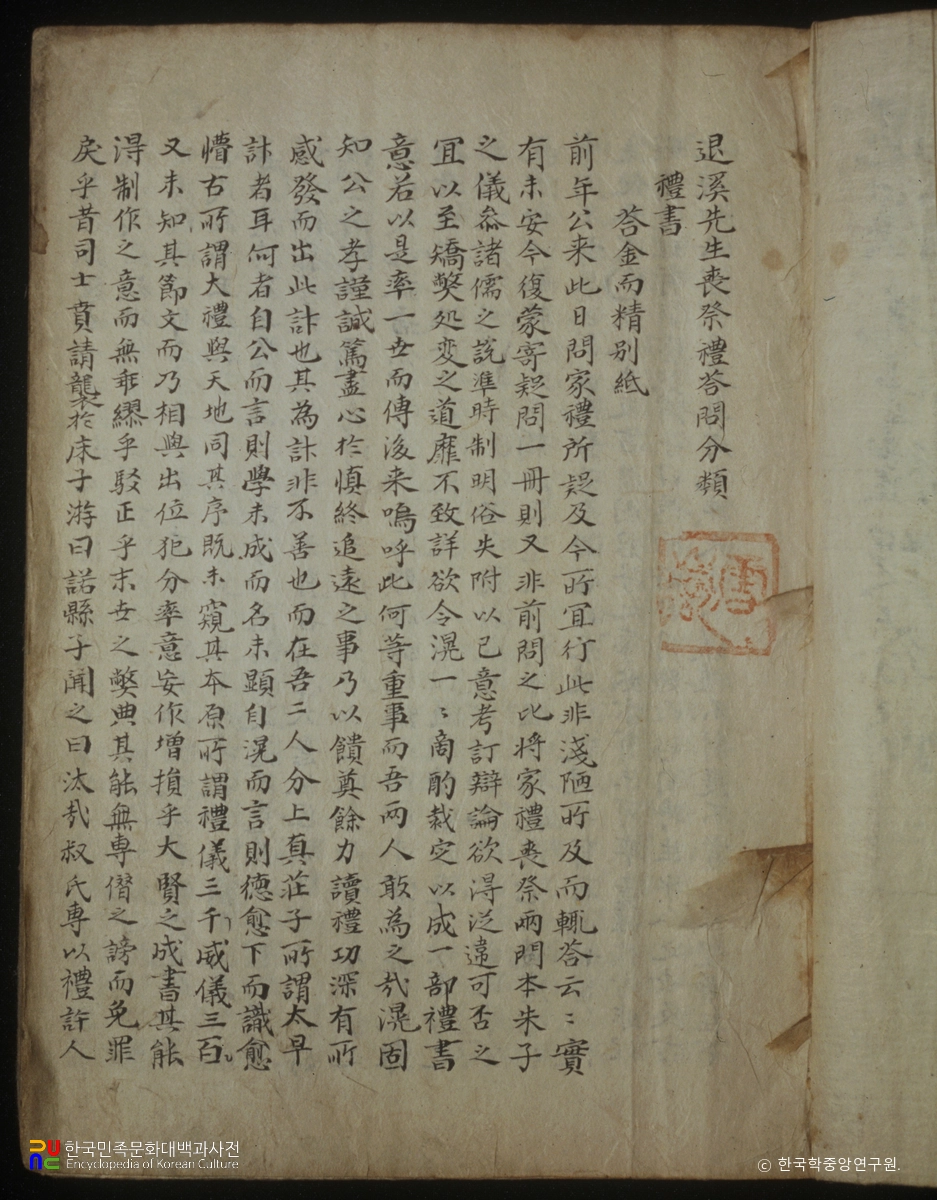 退溪先生喪祭禮答問分類
禮書
答金而精别紙
前年公来此日問家禮所疑及今所宜行此非淺陋所及而輒答云〻實
有未安今復蒙寄疑問一冊則又非前問之比将家禮喪祭两門本朱子
之儀叅諸儒之說準時制明俗失附以已意考訂辯論欲淂泛遠可否之
宜以至矯獘処変之道靡不致詳欲令滉一〻商酌裁定以成一部禮書
意若以是率一世而傳後来嗚呼此何等重事而吾两人敢為之㢤滉固
知公之孝謹誠篤盡心扵慎終追遠之事乃以饋奠餘力讀禮功深有所
感發而出此計也其為計非不善也而在吾二人分上真莊子所謂太早
計者耳何者自公而言則學未成而名未顯自滉而言則徳愈下而識愈
懵古所謂大禮與天地同其序既未窺其本原所謂禮儀三千威儀三百
又未知其節文而乃相與出位犯分率意妄作増損乎大賢之成書其能
淂制作之意而無乖繆乎駁正乎末世之獘典其能無専僭之謗而免罪
戾乎昔司士賁請襲扵床子游曰諾縣子聞之曰汰㢤叔氏専以禮許人
한국민족문화대백과사전
Encyclopedia of Korean Culture
ⓒ 한국학중앙연구원.